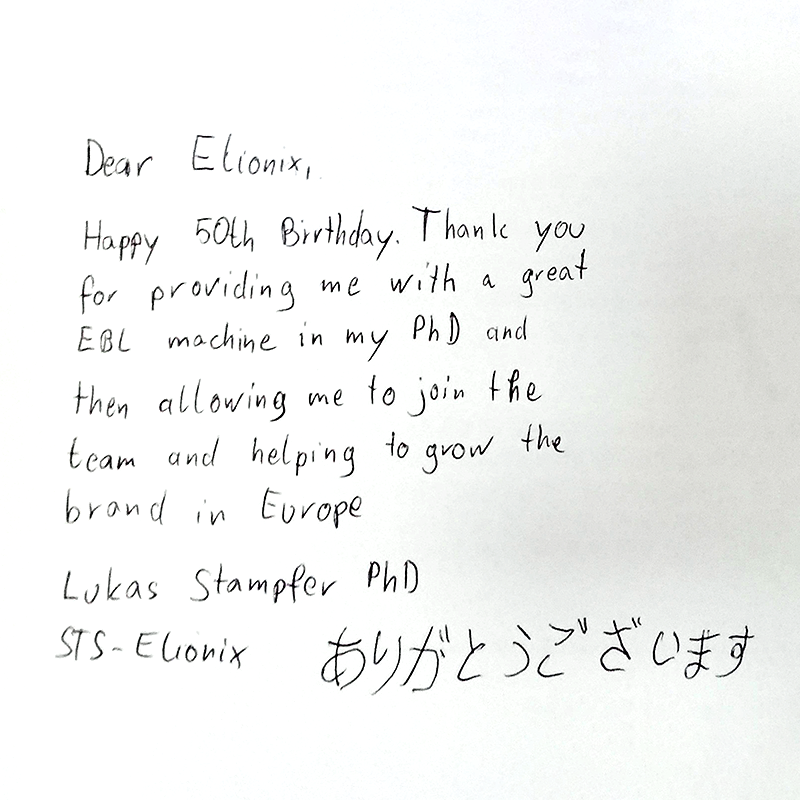 Dear Elionix,
Happy 50th Birthday. Thank you
for providing me with a great
EBL machine in my PhD and
then allowing me to join the
team and helping to grow the
brand in Europe
Lukas Stampfer PhD
STS-Elionix ありがとうございます